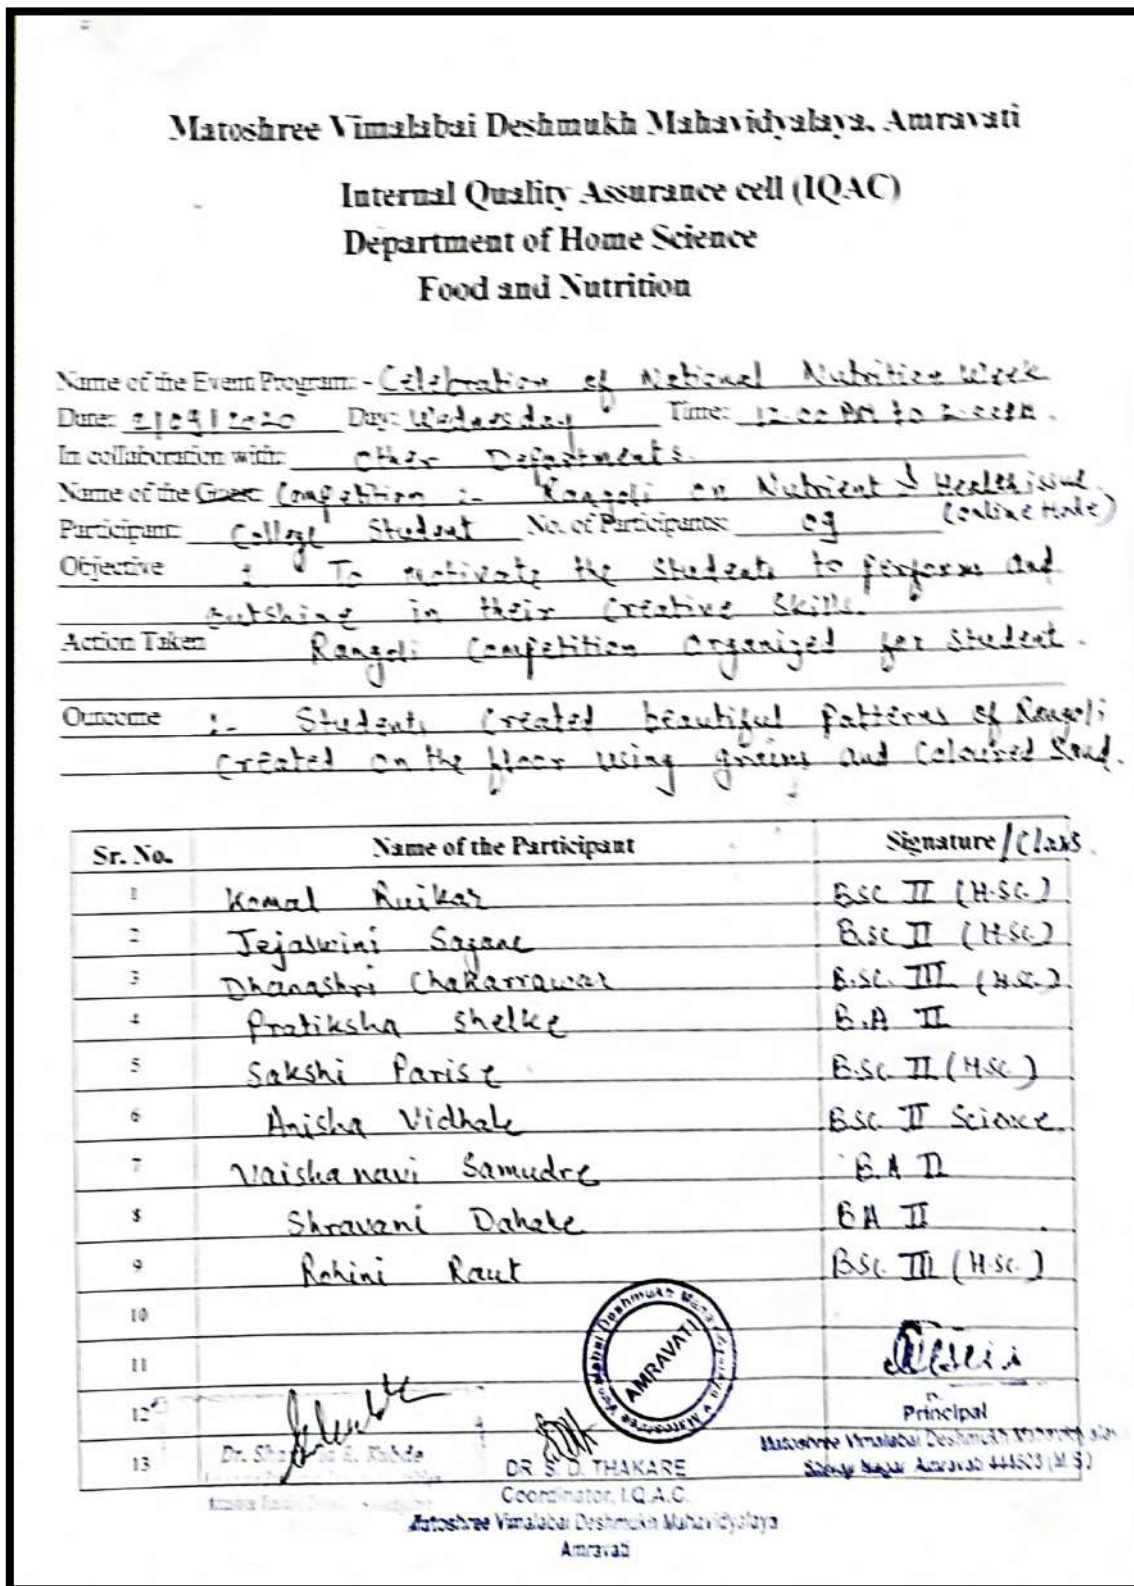 Matoshree Vimalabai Deshmukh Mahavidyalaya, Amravati
Internal Quality Assurance cell (IQAC)
Department of Home Science
Food and Nutrition
Name of the Event Program: - Celebration of National Nutrition Week
Date: 2/09/2020 Day: Wednesday Time: 12.00 PM to 2.00PM.
In collaboration with: Other Departments.
Name of the Guest: Competition :- Rangoli on Nutrient & Health issue
(online Mode)
Participant: College Student No. of Participants: 09
Objective : To motivate the students to perform and
outshine in their creative skills.
Action Taken Rangoli Competition organized for student.
Outcome :- Students created beautiful patterns of Rangoli
created on the floor using grains and Coloured Sand.
Sr. No. Name of the Participant Signature / Class
1 Komal Ruikar BSC II (H.SC.)
2 Tejaswini Sagane B.SC II (H.SC.)
3 Dhanashri Chakarrawar B.SC. III (H.SC.)
4 Pratiksha Shelke B.A II
5 Sakshi Parise B.SC. II (H.SC.)
6 Anisha Vidhale BSC. II Science.
7 Vaishanavi Samudre B.A II
8 Shravani Dahake BA II
9 Rohini Raut BSC. III (H.SC.)
10
11
12
13
AMRAVATI
Principal
Matoshree Vimalabai Deshmukh
Amravati 444603 (M.S.)
Dr. E. Kubde
DR. S. D. THAKARE
Coordinator, I.Q.A.C.
Matoshree Vimalabai Deshmukh Mahavidyalaya
Amravati